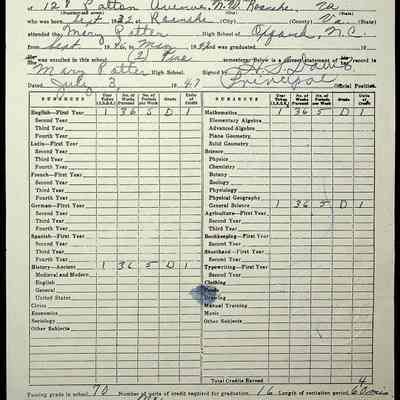 of 128 Patton Avenue, N.W. Roanoke, Va
(City) (State)
who was born Sept 32 at Roanoke (City) (County) Va. (State)
attended the Mary Potter High School at Oxford, N.C.
from Sept 1946 to May 19 and was graduated 19
was enrolled in this school (2) Two semesters. Below is a correct statement of record in
Mary Potter High School. Signed by
Dated July 3, 1947 Principal Official Position.
SUBJECTS Year Taken (1,2,3,4) No. of Weeks Pursued No. of Periods per Week Grade Units of Credit SUBJECTS Year Taken (1,2,3,4) No. of Weeks Pursued No. of Periods per Week Grade Units of Credit
English—First Year 1 36 5 D 1 Mathematics 1 36 5 D 1
Second Year Elementary Algebra
Third Year Advanced Algebra
Fourth Year Plane Geometry
Latin—First Year Solid Geometry
Second Year Science
Third Year Physics
Fourth Year Chemistry
French—First Year Botany
Second Year Zoology
Third Year Physiology
Fourth Year Physical Geography
German—First Year General Science 1 36 5 D 1
Second Year Agriculture—First Year
Third Year Second Year
Fourth Year Third Year
Spanish—First Year Bookkeeping—First Year
Second Year Second Year
Third Year Shorthand—First Year
Fourth Year Second Year
History—Ancient 1 36 5 D 1 Typewriting—First Year
Medieval and Modern Second Year
English Clothing
General Foods
United States Drawing
Civics Manual Training
Economics Music
Sociology Other Subjects
Other Subjects
Total Credits Earned 4
Passing grade in school 70 Number of units of credit required for graduation 16 Length of recitation period 60 min